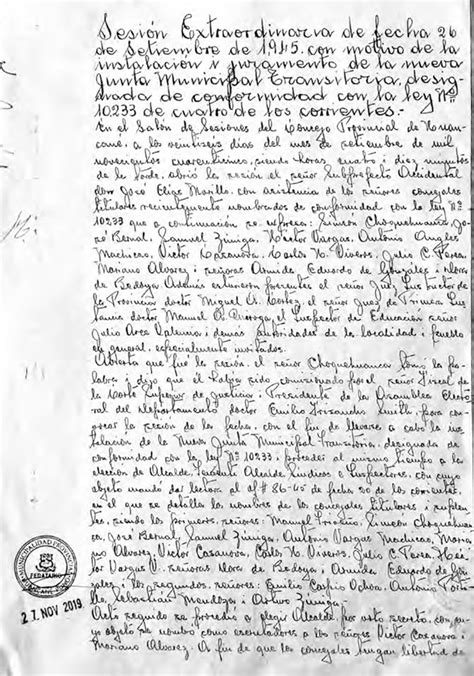 Sesión Extraordinaria de fecha 26
de Setiembre de 1945. con motivo de la
instalación i juramento de la nueva
Junta Municipal Transitoria, desig-
nada de conformidad con la ley Nº
10233 de cuatro de los corrientes.-
En el Salón de Sesiones del Concejo Provincial de Huan-
cané, a los veintiséis días del mes de setiembre de mil
novecientos cuarenticinco, siendo horas cuatro i diez minutos
de la tarde, abrió la sesión el señor Subprefecto Accidental
don José Eliza Morillo, con asistencia de los señores concejales
titulares recientemente nombrados de conformidad con la ley Nº
10233 que a continuación se expresa: Simeon Choquehuanca, Jo-
sé Bernal, Samuel Zúniga, Héctor Vargas, Antonio Angles
Machicao, Victor Casanova, Carlos N. Viveros, Julio C. Perea,
Mariano Alvarez i señoras Armida Eduardo de Gonzales i Nora
de Bedoya. Además estuvieron presentes el señor Juez Instructor de
la Provincia doctor Miguel A. Cortez, el señor Juez de Primera Ins-
tancia doctor Manuel A. Quiroga, el Inspector de Educación señor
Julio Arce Valencia i demás autoridades de la localidad i pueblo
en general, especialmente invitados.
Abierta que fué la sesión, el señor Choquehuanca tomó la pa-
labra i dijo que él había sido comisionado por el señor Fiscal de
la Corte Superior de Justicia i Presidente de la Asamblea Electo-
ral del Departamento doctor Emilio Lizandro Luillh, para con-
vocar la sesión de la fecha, con el fin de llevarse a cabo la ins-
talación de la Nueva Junta Municipal Transitoria, designada de
conformidad con la ley Nº 10233 i proceder al mismo tiempo a la
elección de Alcalde, Teniente Alcalde, Síndicos e Inspectores, con cuyo
objeto mandó dar lectura al of # 86-45 de fecha 20 de los corrientes,
en el que se detalla los nombres de los concejales titulares i suplen-
tes, siendo los primeros, señores: Manuel Frisancho, Simeon Choquehuan-
ca, José Bernal, Samuel Zúniga, Antonio Vargas Machicao, Maria-
no Alvarez, Victor Casanova, Carlos N. Viveros, Julio C. Perea, Héc-
tor Vargas V. señoras Nora de Bedoya i Armida Eduardo de Gon-
zales i los segundos, señores: Emilio Carpio Ochoa, Antonio
Sebastián Mendoza i Arturo Zúniga.-
Acto seguido se procedió a elegir Alcalde, por voto secreto, con cu-
yo objeto se nombró como escrutadores a los señores Victor Casanova i
Mariano Alvarez. A fin de que los concejales tengan libertad de
MUNICIPALIDAD PROVINCIAL
FEDATARIO
27 NOV 2019